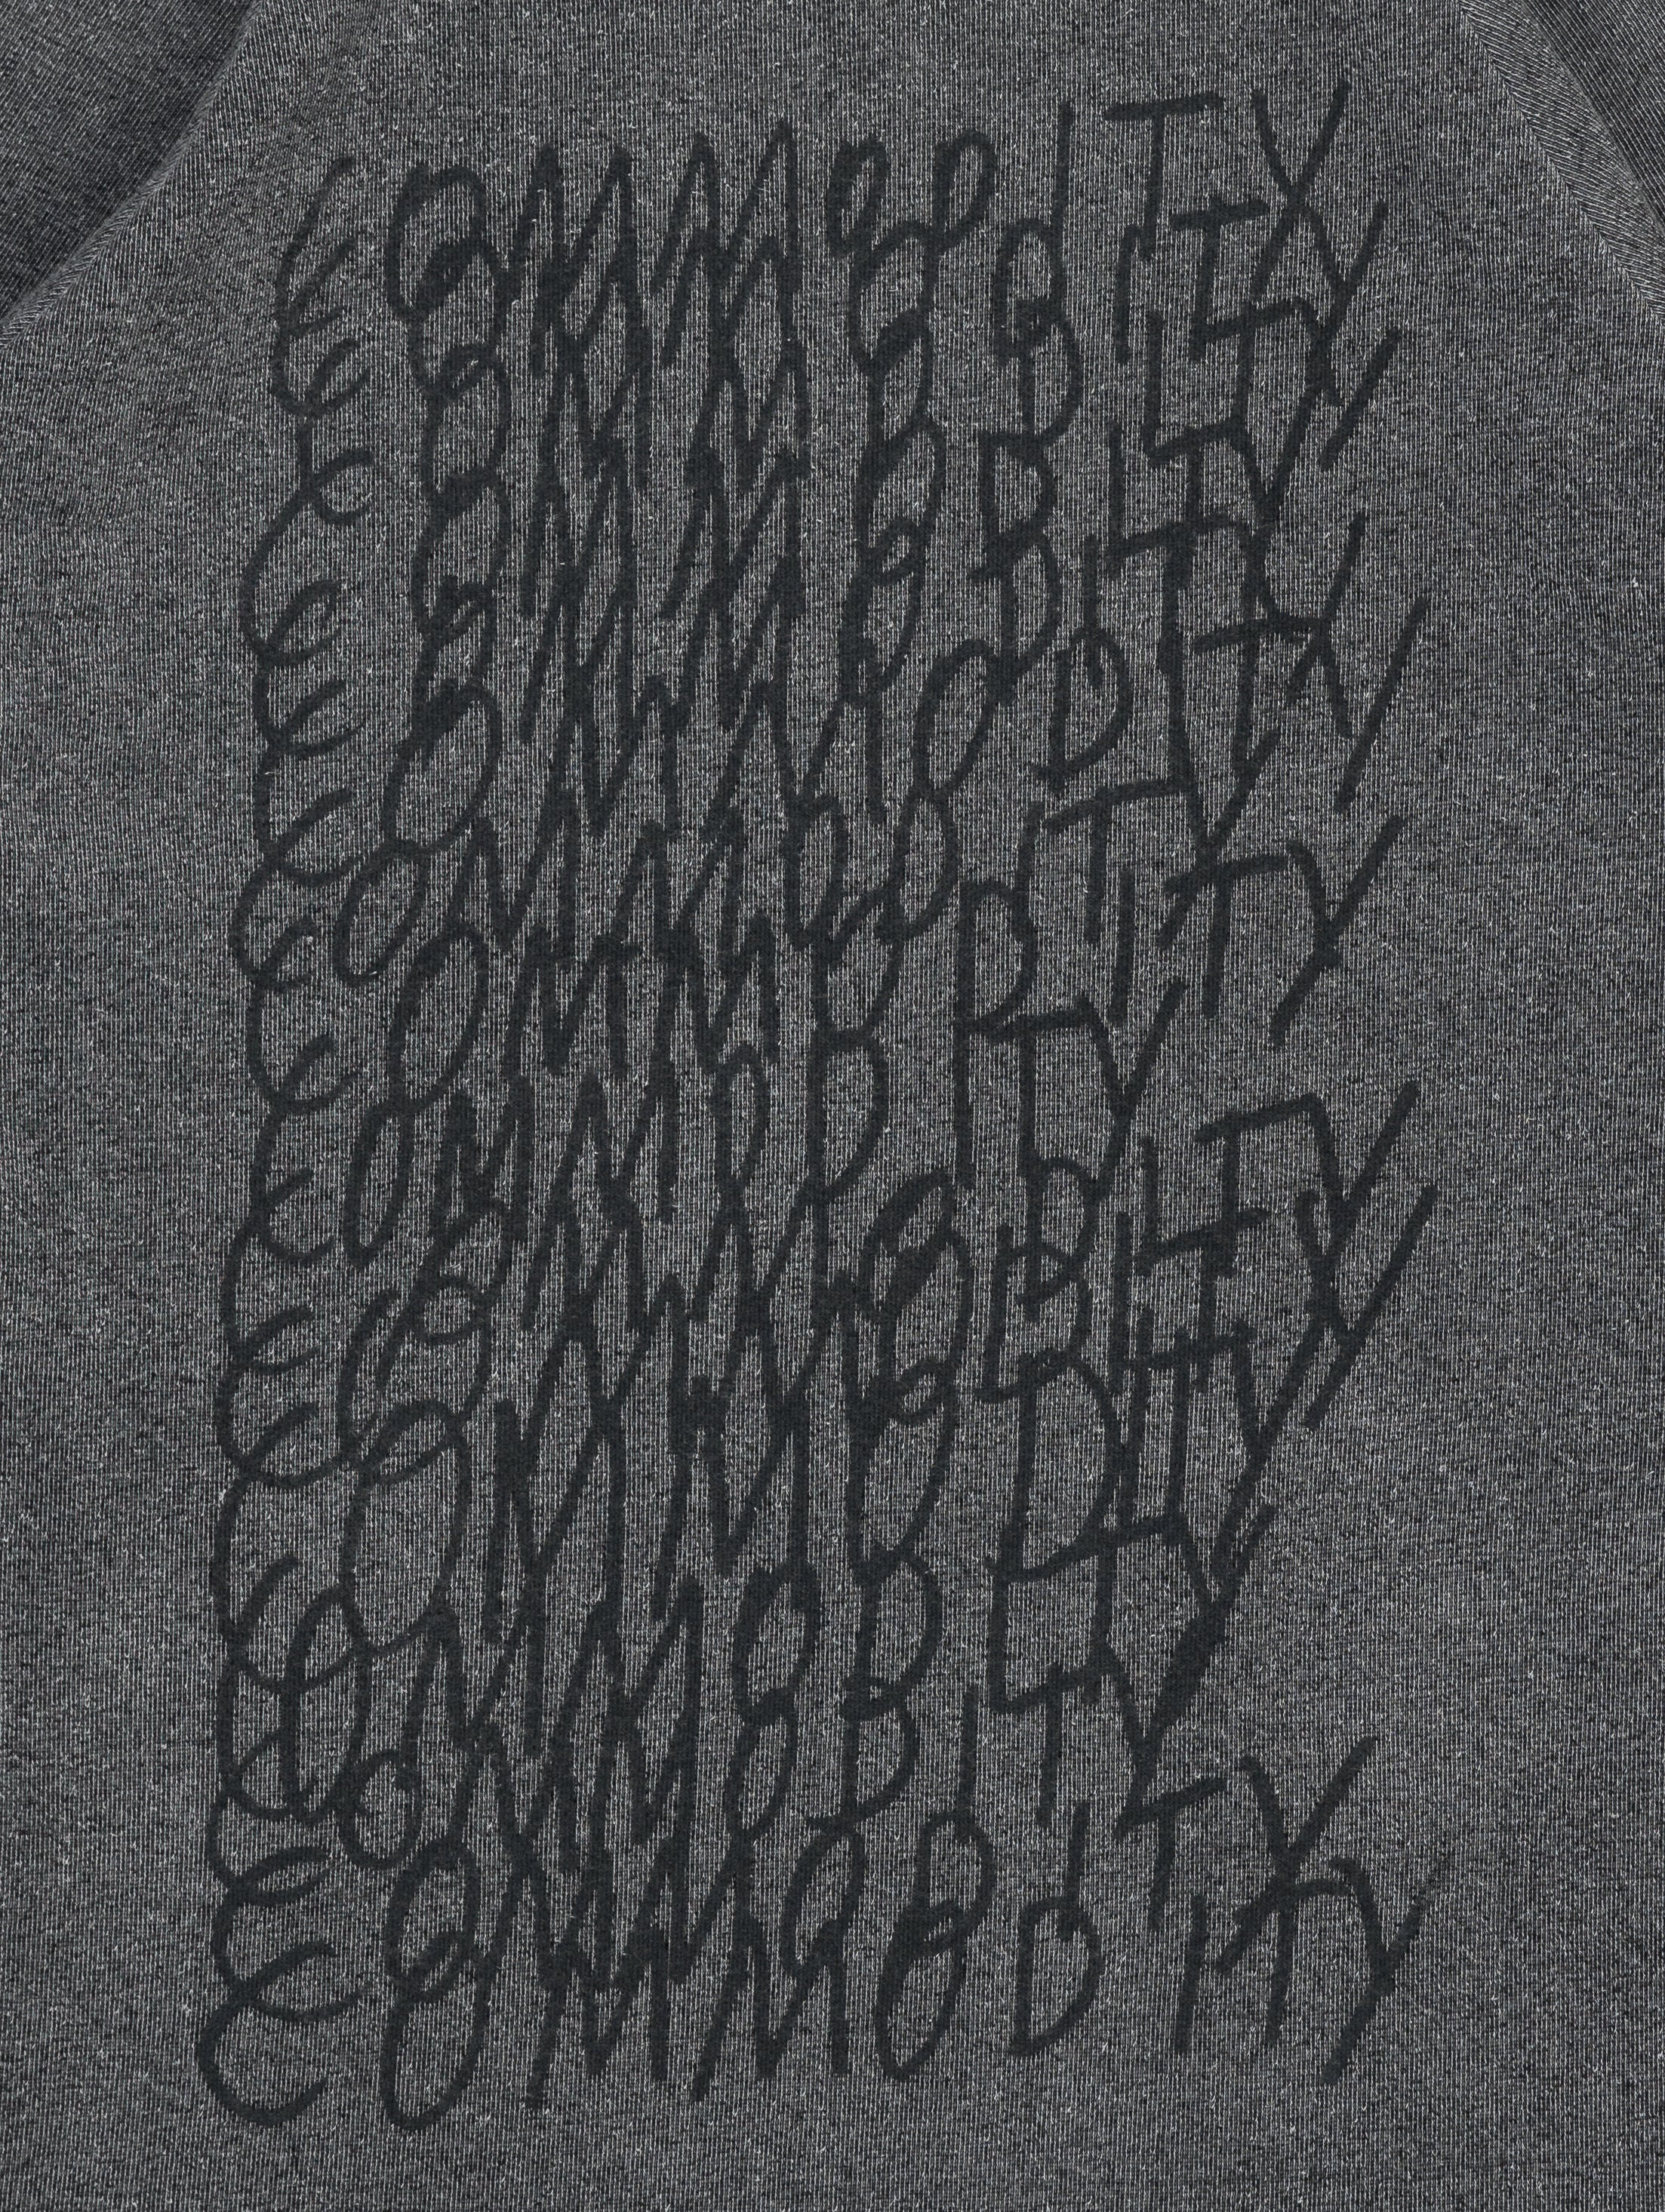 COMMODITY
COMMODITY
COMMODITY
COMMODITY
COMMODITY
COMMODITY
COMMODITY
COMMODITY
COMMODITY
COMMODITY
COMMODITY
COMMODITY
COMMODITY
COMMODITY
COMMODITY
COMMODITY